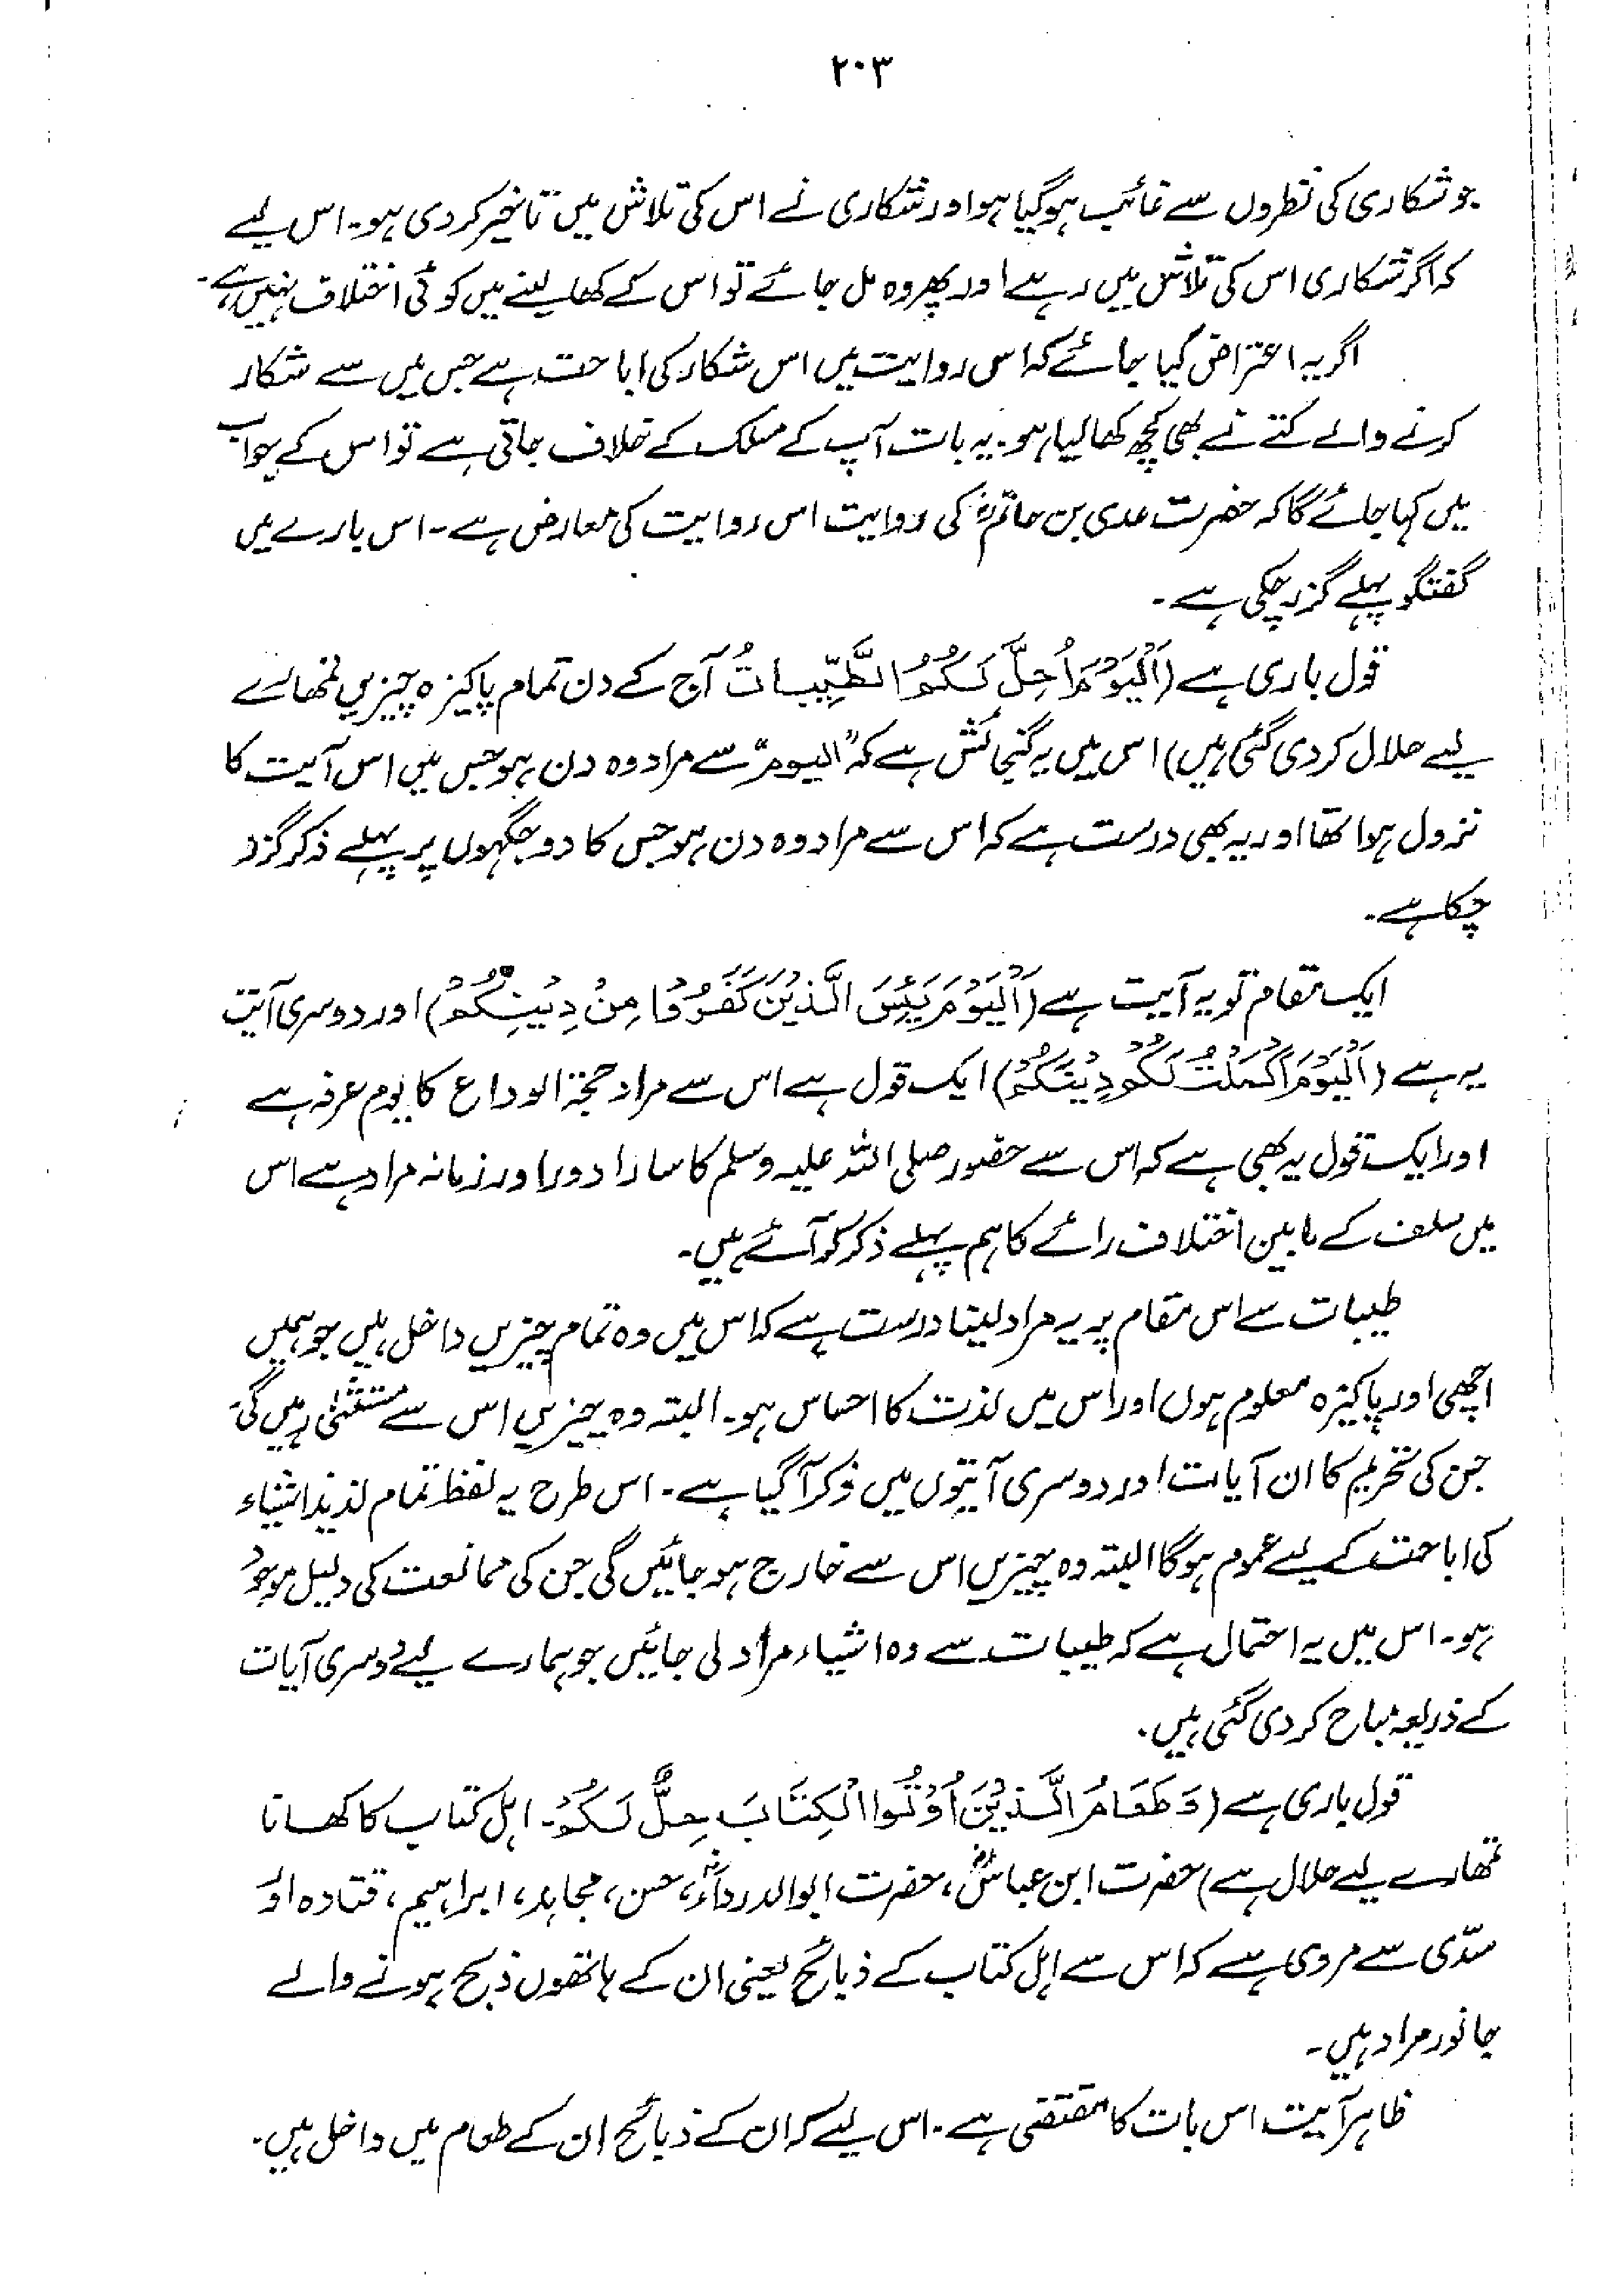 ۲۰۳
جو شکاری کی نظروں سے غائب ہوگیا ہو اور شکاری نے اس کی تلاش میں تاخیر کردی ہو۔ اس لیے
کہ اگر شکاری اس کی تلاش میں رہے اور پھر وہ مل جائے تو اس کے کھا لینے میں کوئی اختلاف نہیں ہے۔
اگر یہ اعتراض کیا جائے کہ اس روایت میں اس شکار کی اباحت ہے جس میں سے شکار
کرنے والے کتے نے بھی کچھ کھا لیا ہو۔ یہ بات آپ کے مسلک کے خلاف جاتی ہے تو اس کے جواب
میں کہا جائے گا کہ حضرت عدی بن حاتمؓ کی روایت اس روایت کی معارض ہے۔ اس بارے میں
گفتگو پہلے گزر چکی ہے۔
قول باری ہے (اَلْیَوْمَ اُحِلَّ لَکُمُ الطَّیِّبَاتُ آج کے دن تمام پاکیزہ چیزیں تمھارے
لیے حلال کردی گئی ہیں) اس میں یہ گنجائش ہے کہ "الیوم" سے مراد وہ دن ہو جس میں اس آیت کا
نزول ہوا تھا اور یہ بھی درست ہے کہ اس سے مراد وہ دن ہو جس کا دو جگہوں پر پہلے ذکر گزر
چکا ہے۔
ایک مقام تو یہ آیت ہے (اَلْیَوْمَ یَئِسَ الَّذِیْنَ کَفَرُوْا مِنْ دِیْنِکُمْ) اور دوسری آیت
یہ ہے (اَلْیَوْمَ اَکْمَلْتُ لَکُمْ دِیْنَکُمْ) ایک قول ہے اس سے مراد حجۃ الوداع کا یوم عرفہ ہے
اور ایک قول یہ بھی ہے کہ اس سے حضور صلی اللہ علیہ وسلم کا سارا دور اور زمانہ مراد ہے اس
میں سلف کے مابین اختلاف رائے کا ہم پہلے ذکر کر آئے ہیں۔
طیبات سے اس مقام پر یہ مراد لینا درست ہے کہ اس میں وہ تمام چیزیں داخل ہیں جو ہمیں
اچھی اور پاکیزہ معلوم ہوں اور اس میں لذت کا احساس ہو۔ البتہ وہ چیزیں اس سے مستثنیٰ رہیں گی۔
جن کی تحریم کا ان آیات اور دوسری آیتوں میں ذکر آگیا ہے۔ اس طرح یہ لفظ تمام لذیذ اشیاء
کی اباحت کے لیے عموم ہوگا البتہ وہ چیزیں اس سے خارج ہو جائیں گی جن کی ممانعت کی دلیل موجود
ہو۔ اس میں یہ احتمال ہے کہ طیبات سے وہ اشیاء مراد لی جائیں جو ہمارے لیے دوسری آیات
کے ذریعہ مباح کردی گئی ہیں۔
قول باری ہے (وَطَعَامُ الَّذِیْنَ اُوْتُوا الْکِتَابَ حِلٌّ لَکُمْ۔ اہل کتاب کا کھانا
تمھارے لیے حلال ہے) حضرت ابن عباسؓ، حضرت ابوالدرداءؓ، حسن، مجاہد، ابراہیم، قتادہ اور
سدّی سے مروی ہے کہ اس سے اہل کتاب کے ذبائح یعنی ان کے ہاتھوں ذبح ہونے والے
جانور مراد ہیں۔
ظاہر آیت اس بات کا مقتضی ہے۔ اس لیے کہ ان کے ذبائح ان کے طعام میں داخل ہیں۔